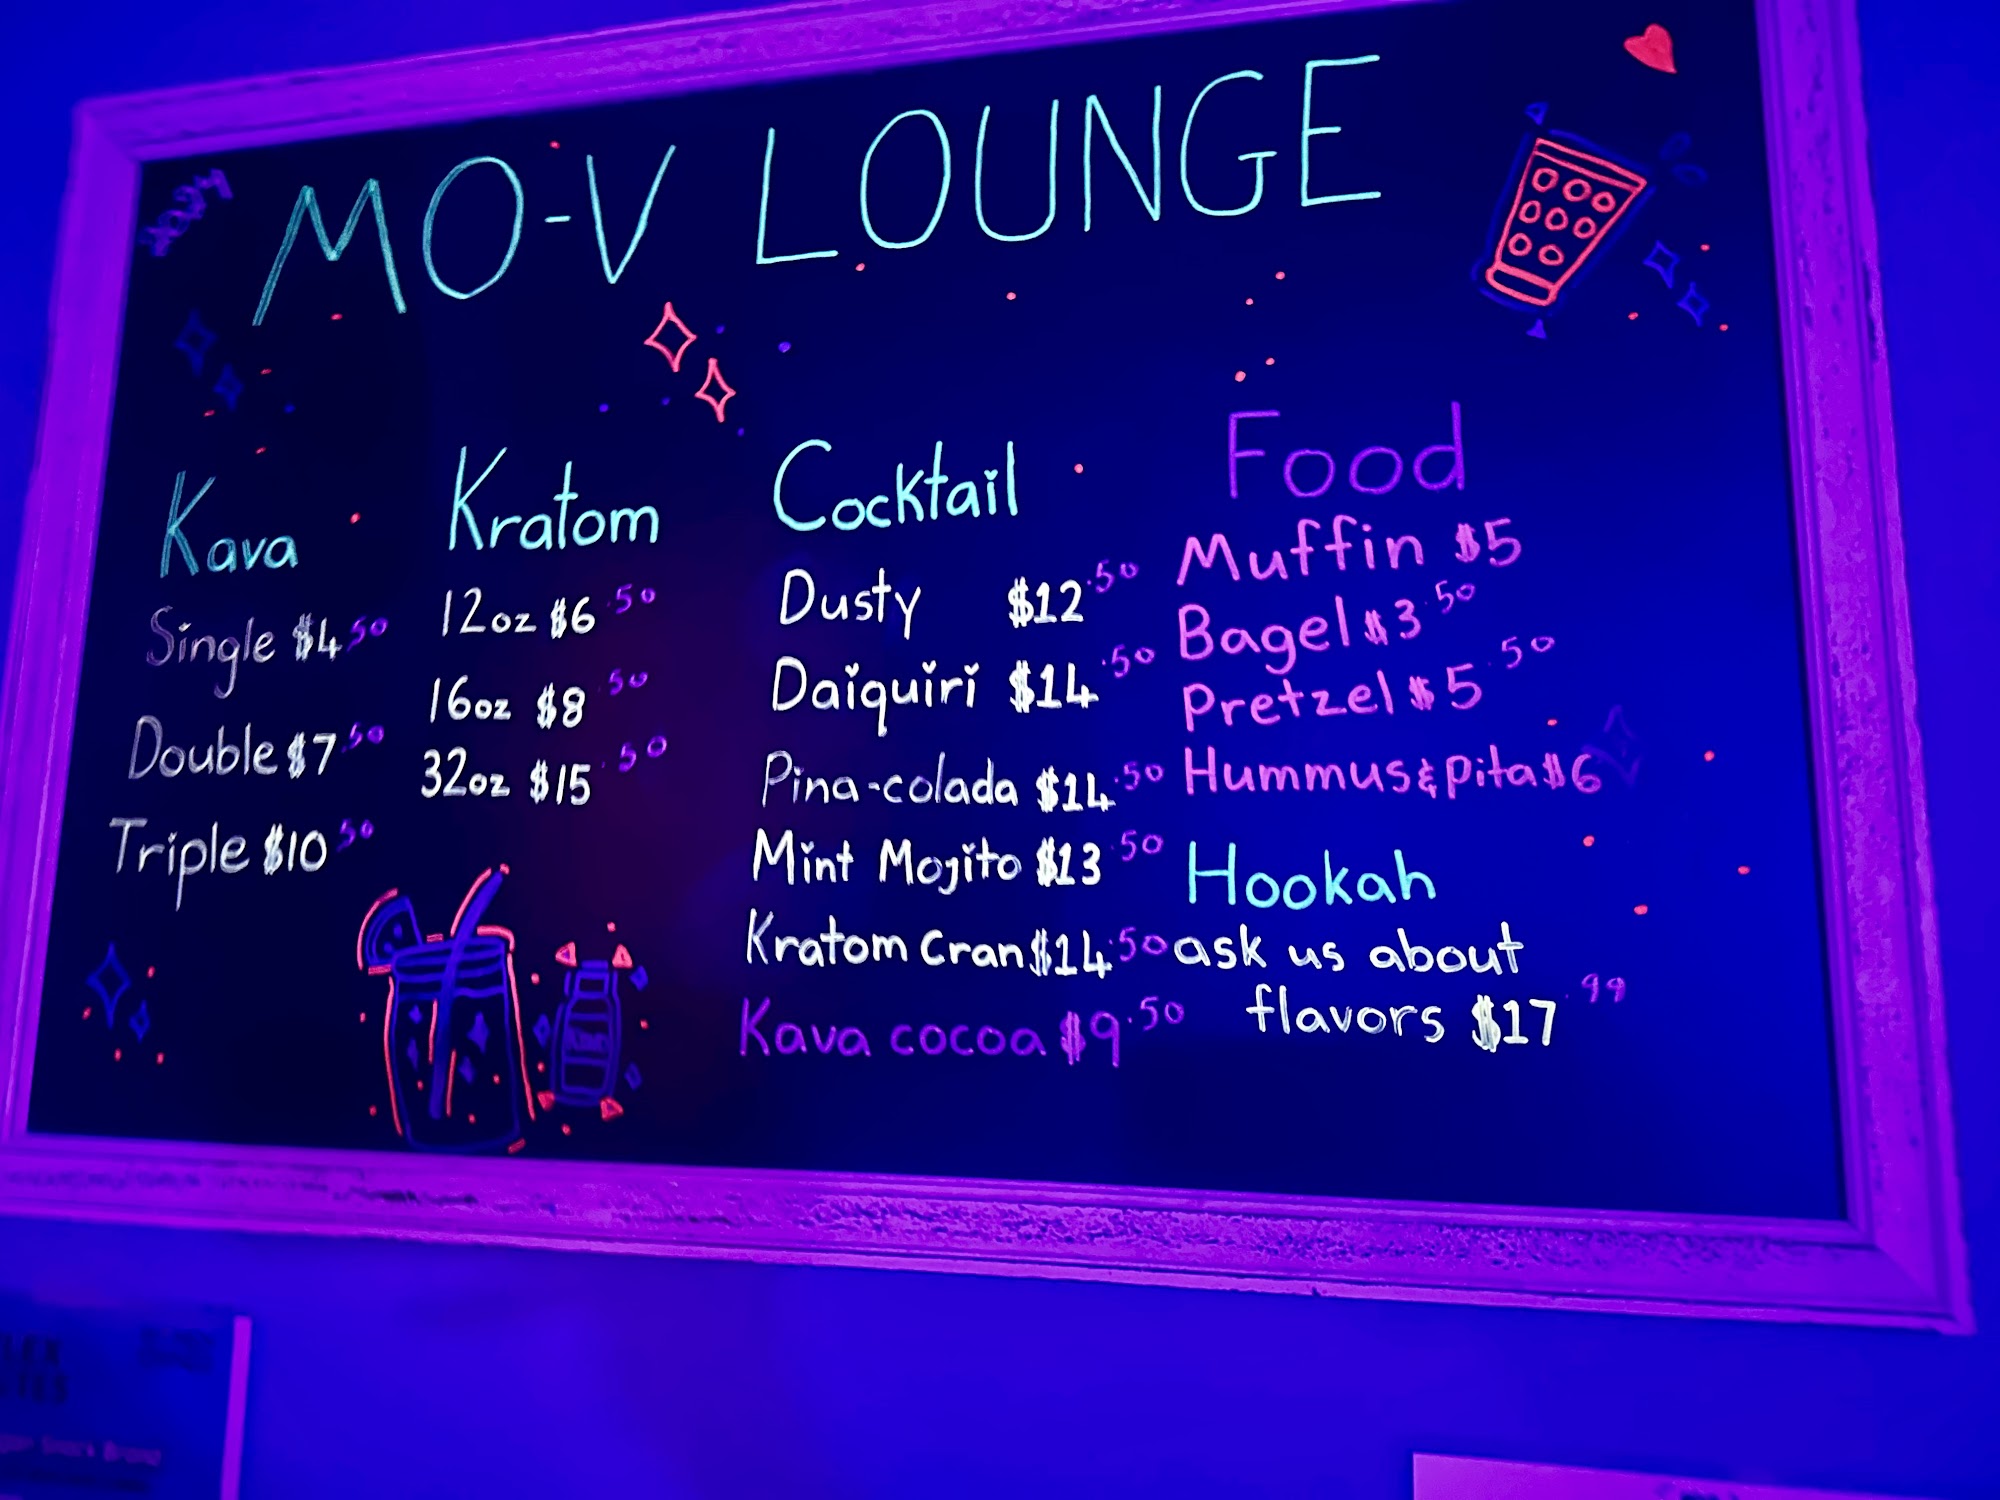 MO-V LOUNGE
Kava
Single $4.50
Double $7.50
Triple $10.50
Kratom
12oz $6.50
16oz $8.50
32oz $15.50
Cocktail
Dusty $12.50
Daiquiri $14.50
Pina-colada $14.50
Mint Mojito $13.50
Kratom Cran $14.50
Kava cocoa $9.50
Food
Muffin $5
Bagel $3.50
Pretzel $5.50
Hummus & pita $6
Hookah
ask us about
flavors $17.99
Snack Brand